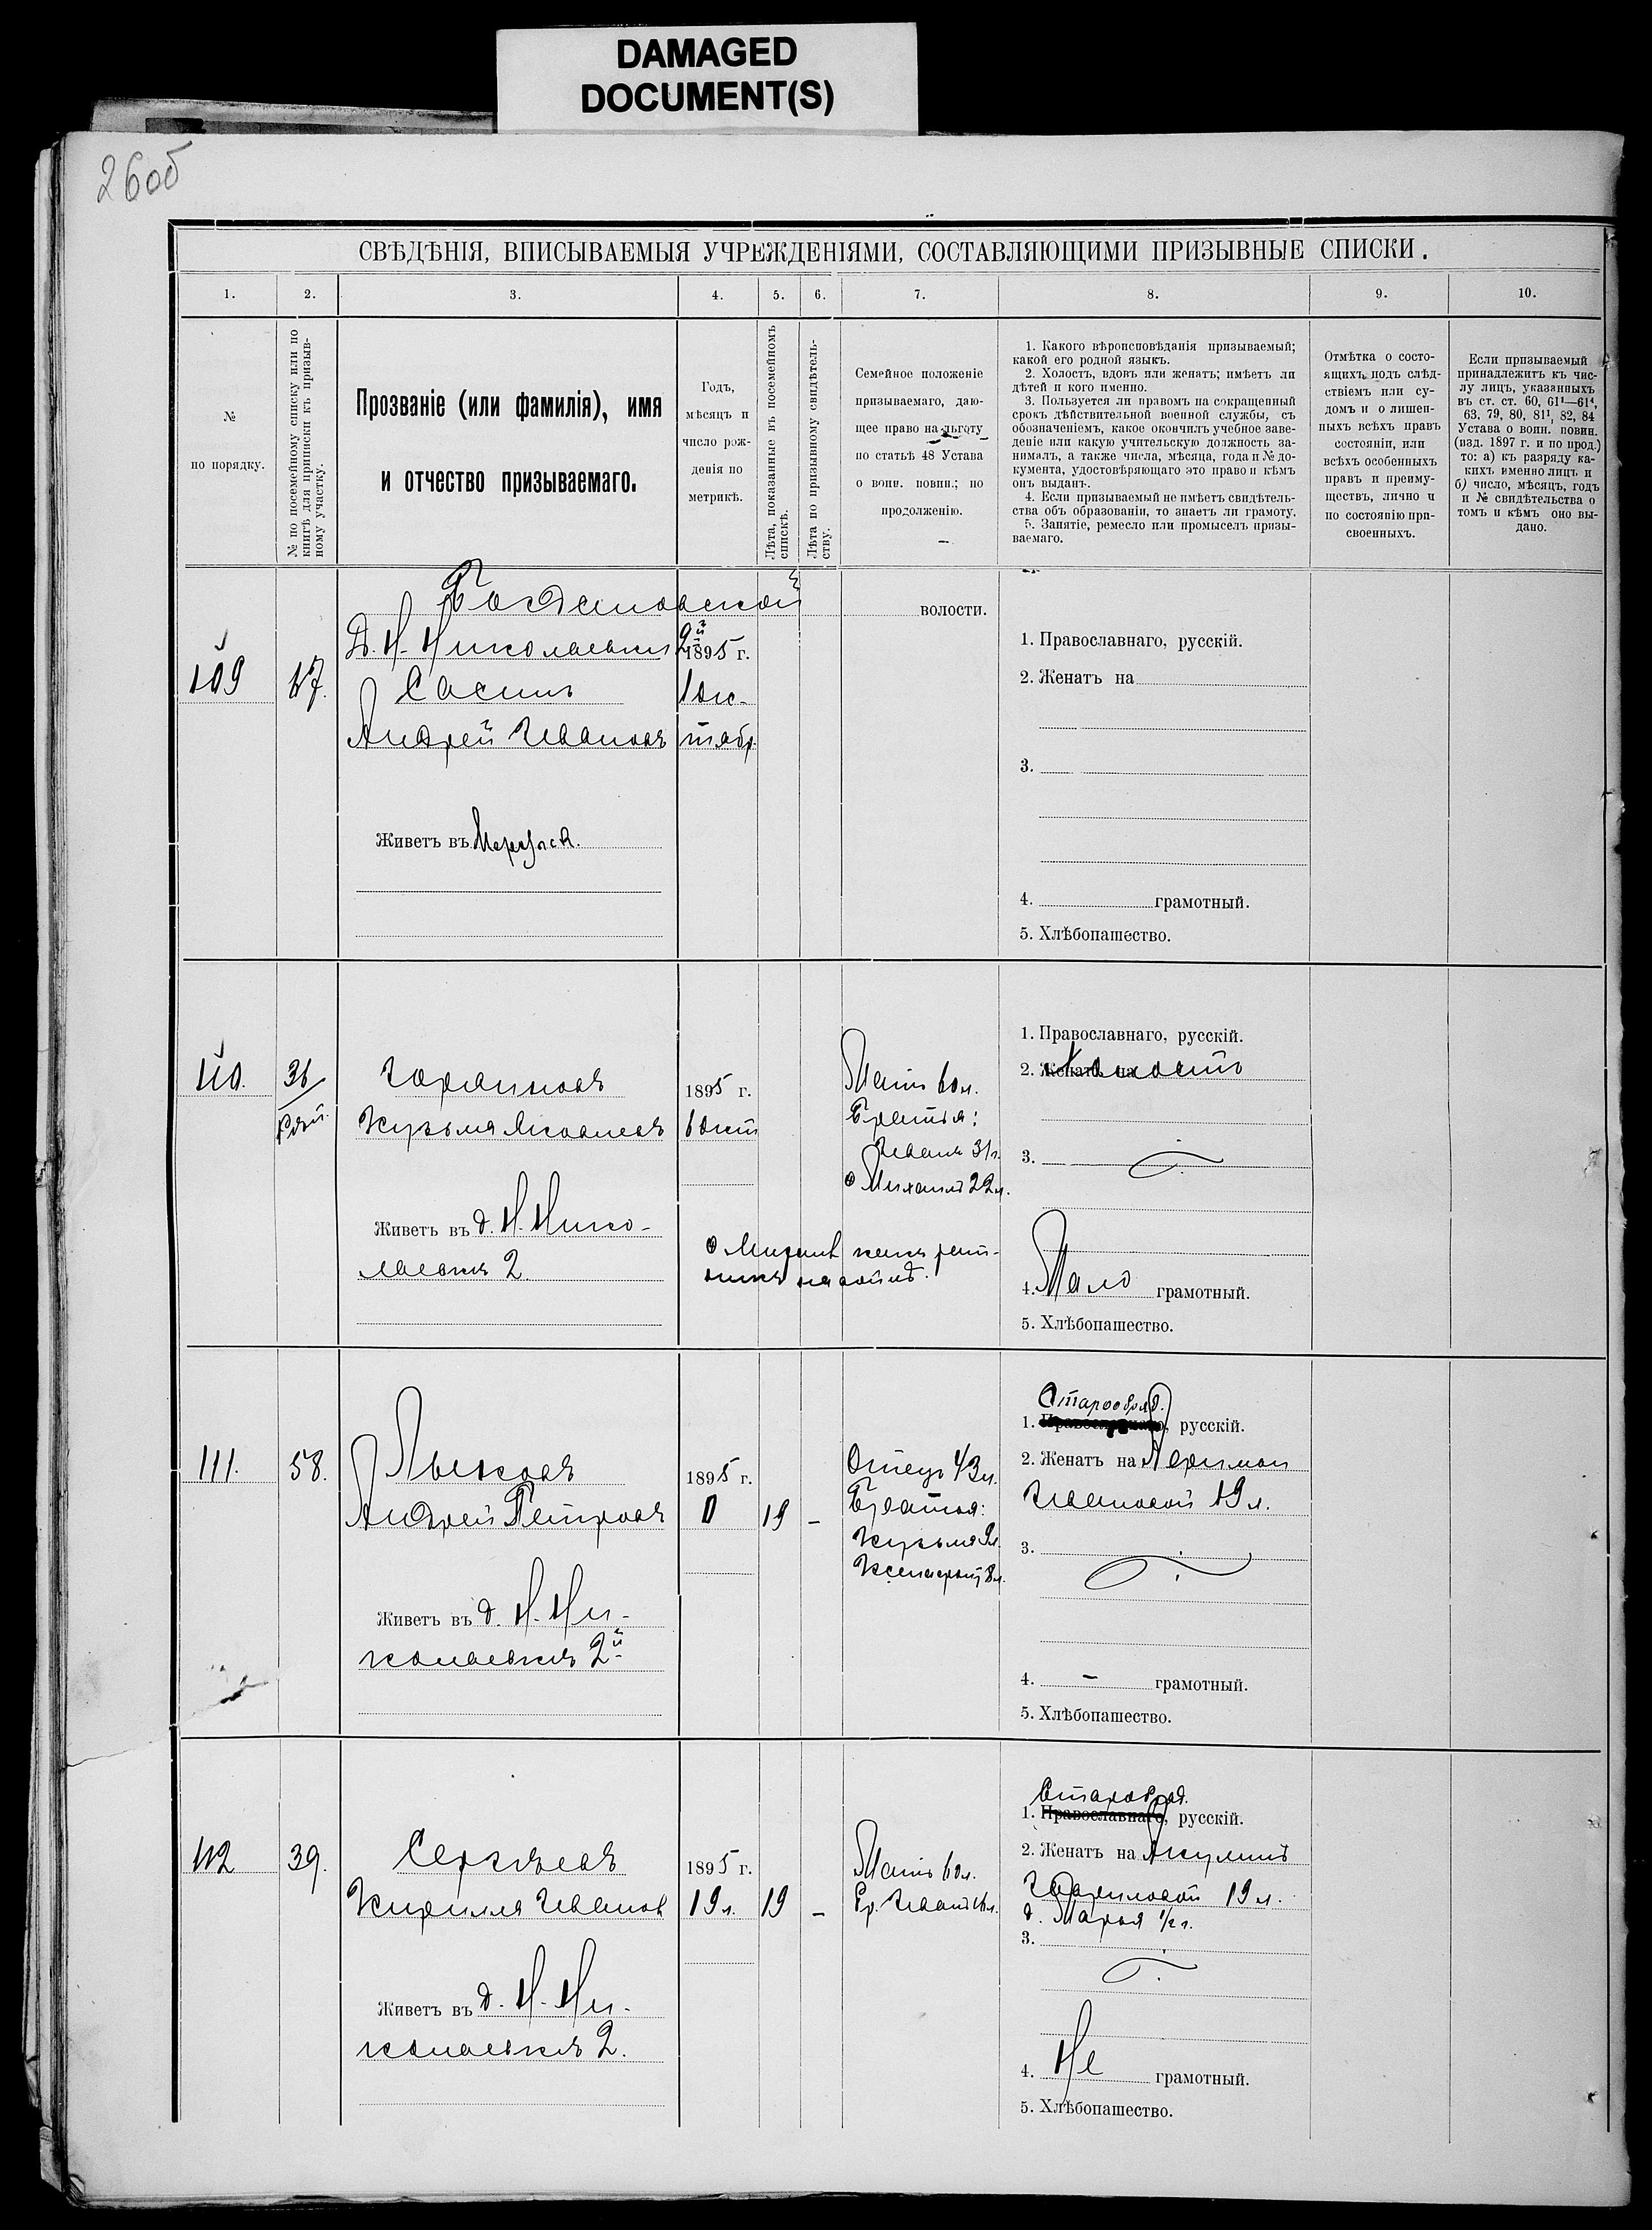 DAMAGED
DOCUMENT(S)
26об
СВѢДѢНІЯ, ВПИСЫВАЕМЫЯ УЧРЕЖДЕНІЯМИ, СОСТАВЛЯЮЩИМИ ПРИЗЫВНЫЕ СПИСКИ.
1. 2. 3. 4. 5. 6. 7. 8. 9. 10.
№
по порядку.
№ по посемейному списку или по
книгѣ для приписки къ призыв-
ному участку.
Прозваніе (или фамилія), имя
и отчество призываемаго.
Годъ,
мѣсяцъ и
число рож-
денія по
метрикѣ.
Лѣта, показанные въ посемейномъ
спискѣ.
Лѣта по призывному свидѣтель-
ству.
Семейное положеніе
призываемаго, даю-
щее право на льготу
по статьѣ 48 Устава
о воин. повин.; по
продолженію.
1. Какого вѣроисповѣданія призываемый;
какой его родной языкъ.
2. Холостъ, вдовъ или женатъ; имѣетъ ли
дѣтей и кого именно.
3. Пользуется ли правомъ на сокращенный
срокъ дѣйствительной военной службы, съ
обозначеніемъ, какое окончилъ учебное заве-
деніе или какую учительскую должность за-
нималъ, а также числа, мѣсяца, года и № до-
кумента, удостовѣряющаго это право и кѣмъ
онъ выданъ.
4. Если призываемый не имѣетъ свидѣтель-
ства объ образованіи, то знаетъ ли грамоту.
5. Занятіе, ремесло или промыселъ призы-
ваемаго.
Отмѣтка о состо-
ящихъ подъ слѣд-
ствіемъ или су-
домъ и о лишен-
ныхъ всѣхъ правъ
состоянія, или
всѣхъ особенныхъ
правъ и преиму-
ществъ, лично и
по состоянію при-
своенныхъ.
Если призываемый
принадлежитъ къ чис-
лу лицъ, указанныхъ
въ ст. ст. 60, 61¹—61⁴,
63, 79, 80, 81¹, 82, 84
Устава о воин. повин.
(изд. 1897 г. и по прод.)
то: а) къ разряду ка-
кихъ именно лицъ и
б) число, мѣсяцъ, годъ
и № свидѣтельства о
томъ и кѣмъ оно вы-
дано.
Богдановской волости.
Д. Н. Николаевки 2й
109 67. 1895 г.
Сосинъ
Андрей Ивановъ
1 Ок-
тябр.
Живетъ въ
1. Православнаго, русскій.
2. Женатъ на
3.
4. грамотный.
5. Хлѣбопашество.
110. 36
Кузьма Яковлевъ
1895 г.
6 Окт
Живетъ въ д. Н. Нико-
лаевкѣ 2.
Мать 60 л.
Братья:
Иванъ 31 г.
Михаилъ 22 л.
Михаилъ какъ рат-
никъ на войнѣ.
1. Православнаго, русскій.
2. Женатъ на Холостъ
3.
4. Мало грамотный.
5. Хлѣбопашество.
111. 58.
Лысковъ
Андрей Петровъ
1895 г.
0 19 –
Живетъ въ д. Н. Ни-
колаевкѣ 2й
Отецъ 43 л.
Братья:
Кузьма 9 л.
Ксенофонт 8 л.
Старообряд.
1. Православнаго, русскій.
2. Женатъ на
Ивановой 19 л.
3.
4. – грамотный.
5. Хлѣбопашество.
112 39.
Сергѣевъ
Кирилла Иванов
1895 г.
19 л. 19 –
Живетъ въ д. Н. Ни-
колаевкѣ 2.
Мать 60 л.
Бр. Иванъ 16 л.
Старобряд.
1. Православнаго, русскій.
2. Женатъ на Акулинѣ
Гавриловой 19 л.
д. Марья 1/2 г.
3.
4. Не грамотный.
5. Хлѣбопашество.